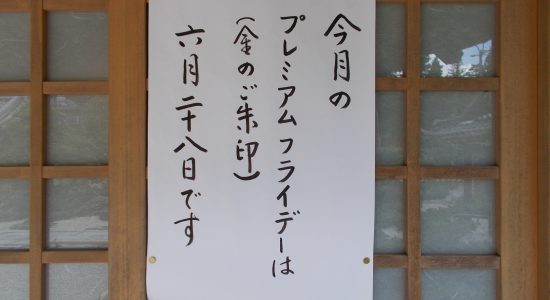 今月の
プレミアムフライデーは
(金のご朱印)
六月二十八日です